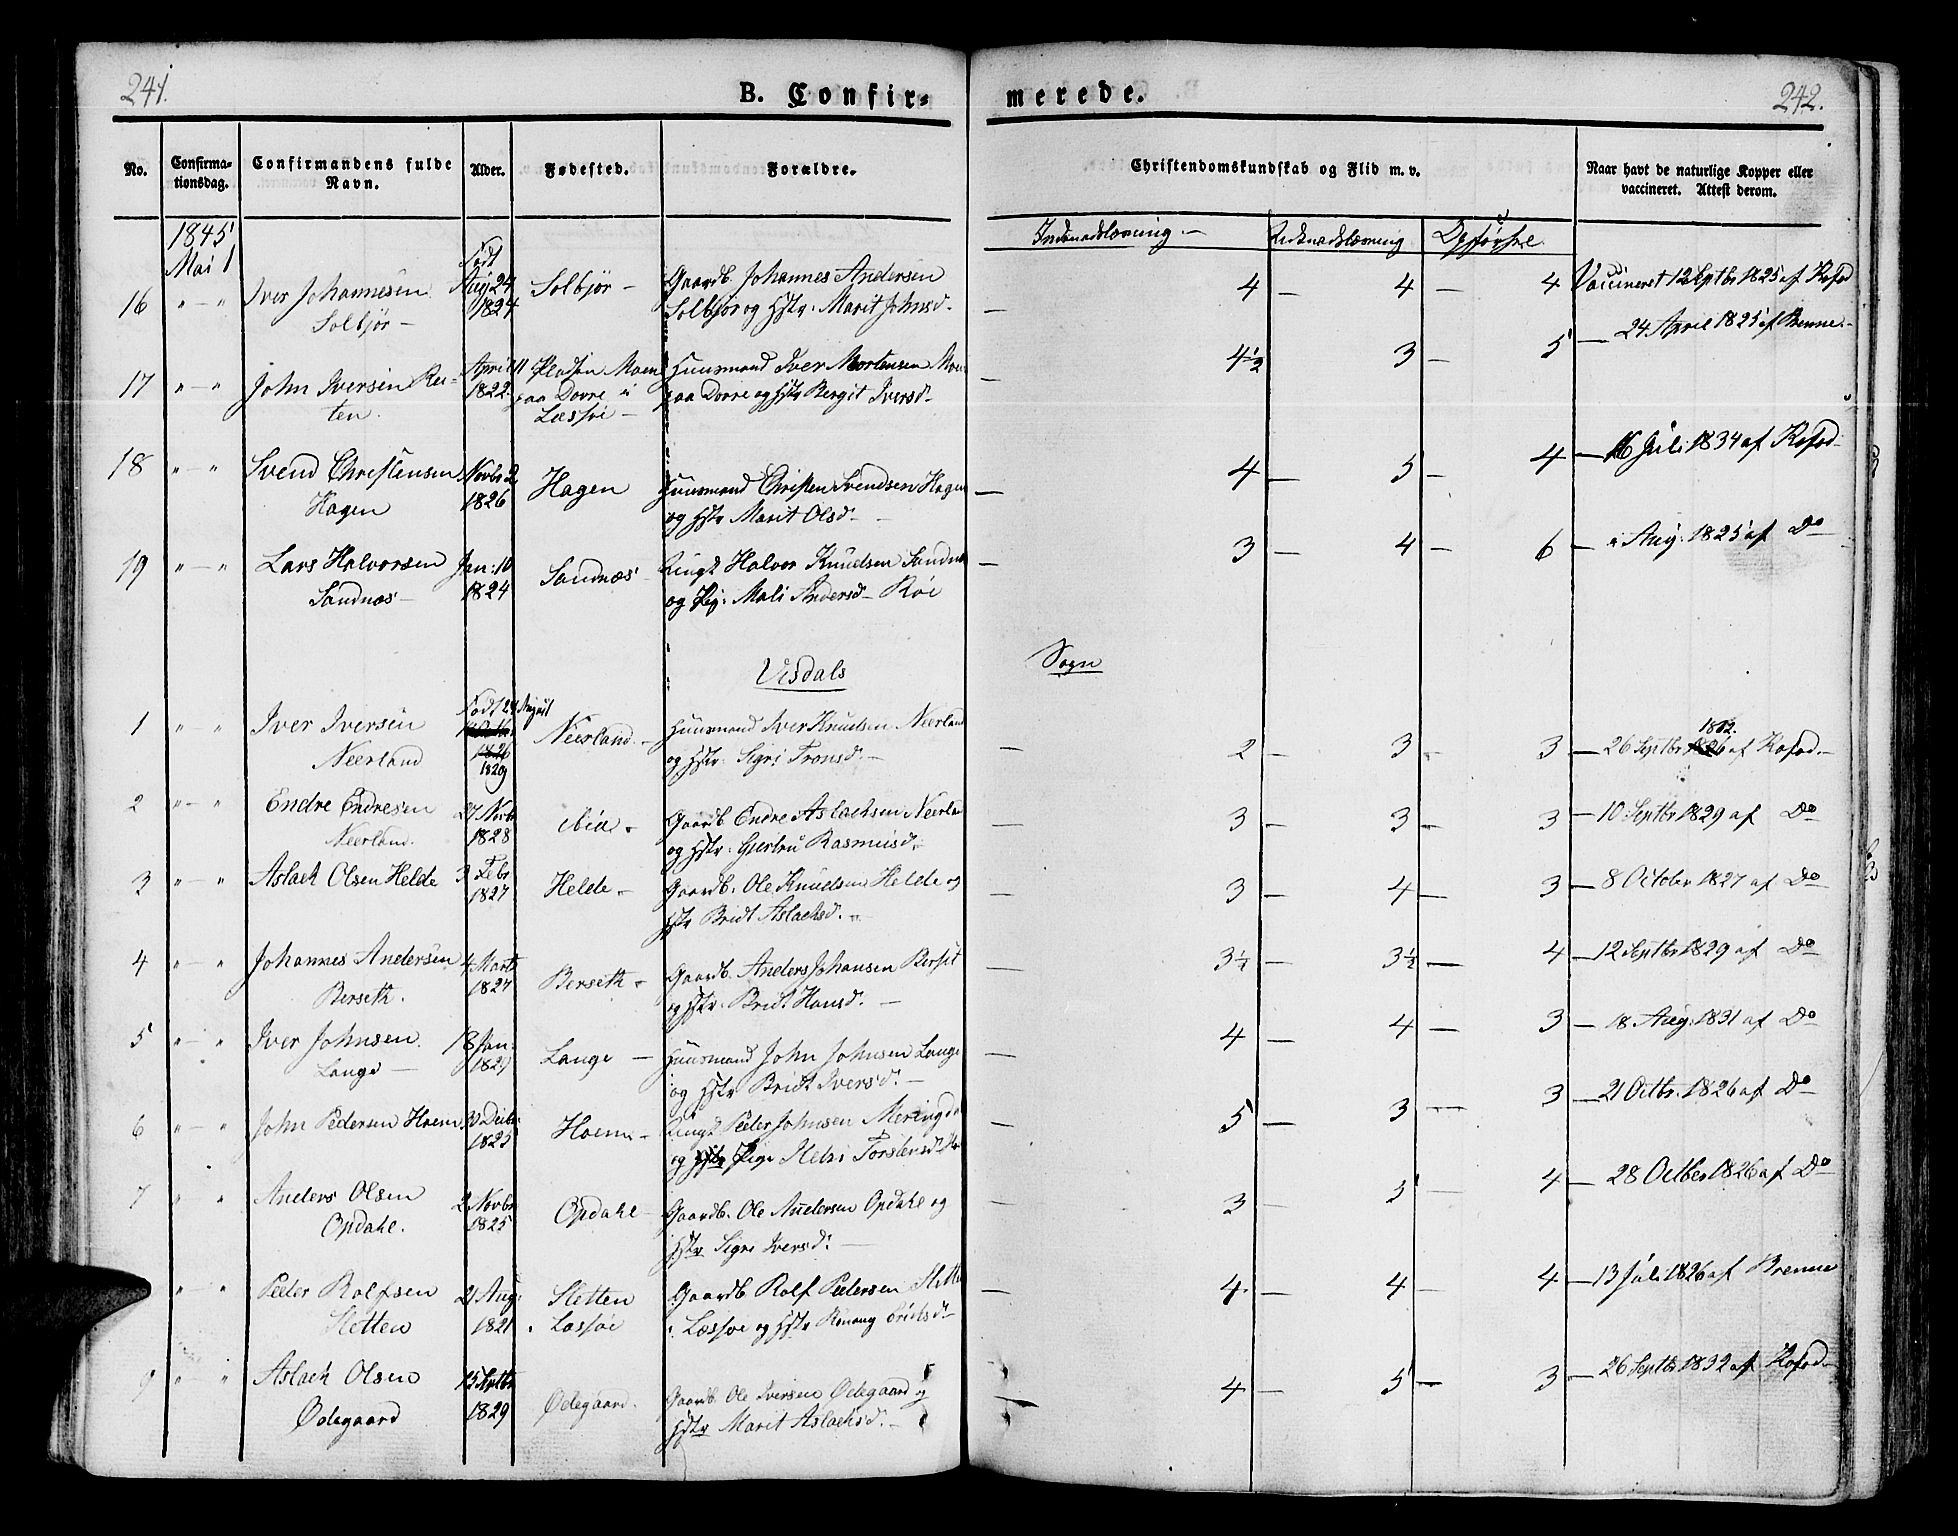 241.
B. Confir-
merede.
242.
No.
Confirma-
tionsdag.
Confirmandens fulde
Navn.
Alder.
Fødested.
Forældre.
Christendomskundskab og Flid m.v.
Naar havt de naturlige Kopper eller
vaccineret. Attest derom.
1845
Mai 1
Født
16 " — " Iver Johannesen Solbjør — Aug 24 1824 Solbjør — Gaardb. Johannes Andersen Solbjør og Hstr: Marit Johnsd. — 4 — 4 — 4 Vaccineret 12 Septbr 1825 af Kofod
17 " — " John Iversen April 11 1822. Pladsen Moen paa Dovre i Læssøe — Huusmand Iver Mortensen paa Dovre og Hstr Bergit Iversd. — 4½ 3 — 5 — 24 April 1825 af Brenne. —
18 " — " Svend Christensen Hagen Novbr 2 1826 Hagen Huusmand Christen Svendsen Hagen og Hstr Marit Olsd. — 4 — 5 — 4 — 16 Juli 1834 af Kofod
19 " — " Lars Halvorsen Sandnæs — Jan: 10 1824 Sandnæs — Ungk Halvor Knudsen Sandnæs og Pig: Mali Andersd. Röe — 3 — 4 — 6 — Aug. 1825 af Do
Visdals
Sogn
1 " — " Iver Iversen Neerland Født 24 August 1829 Neerland — Huusmand Iver Knudsen Neerland og Hstr: Sigri Tronsd. — 2 — 3 — 3 — 26 Septbr 1826 af Kofod —
2 " — " Endre Endresen Neerland. 27 Novbr 1828 ibid — Gaardb Endre Aslachsen Neerland og Hstr: Giertru Rasmusd. — 3 — 3 — 3 — 10 Septbr 1829 af Do
3 " — " Aslach Olsen Helde 3 Febr 1827 Helde — Gaardb. Ole Knudsen Helde og Hstr Bridt Aslachsd. — 3 — 4 — 3 — 8 October 1827 af Do
4 " — " Johannes Andersen Berseth. 4 Marts 1827 Berseth — Gaardb. Anders Johansen Berset og Hstr: Bridt Hansd. — 3½ — 3½ — 4 — 12 Septbr 1829 af Do
5 " — " Iver Johnsen Lange — 18 Jan: Lange — Huusmand John Johnsen Lange og Hstr Bridt Iversd. — 4 — 4 — 3 — 18 Aug: 1831 af Do
6 " — " John Pedersen Hoem 1825 Hoem — Ungk Peder Johnsen og Pige Torstensd. — 5 — 3 — 3 — 21 Octbr. 1826 af Do
7 " " Anders Olsen Opdahl. 2 Novbr 1825 Opdahl — Gaardb. Ole Andersen Opdahl og Hstr Sigri Iversd. — 3 — 3 — 4 — 28 Octber 1826 af Do
" — " Peder Rolfsen Sletten 21 Aug: 1821 Sletten i Læssøe Gaardb Rolf Pedersen Slette i Læssøe og Hstr Ericksd. — 4 — 4 — 4 — 13 Juli 1826 af Brenne
9 " — " Aslach Olsen Ødegaard 15 Septbr 1829 Ødegaard. Gaardb. Ole Iversen Ødegaard og Hstr Marit Aslachsd. — 4 — 5 — 3 — 26 Septbr 1832 af Kofod —